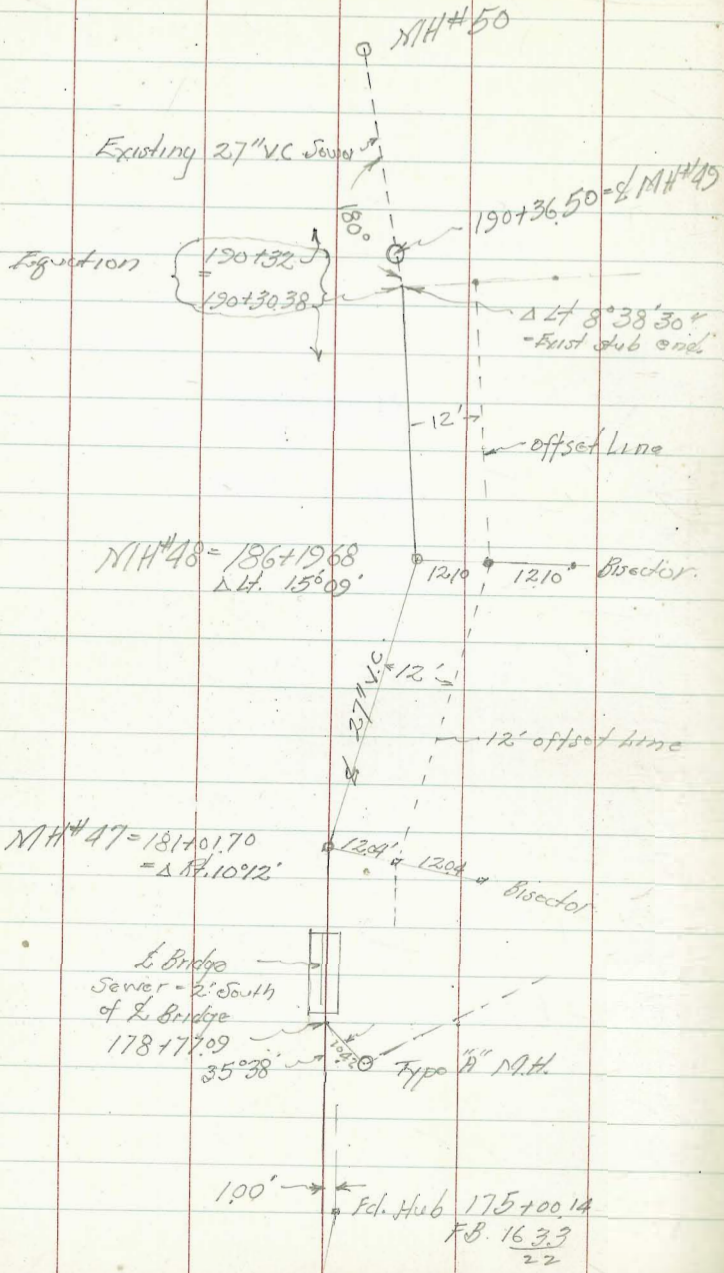 MH#50
Existing 27" V.C Sewer
180°
190+36.50 = ℄ MH#49
Equation
190+32
=
190+30.38
Δ Lt 8°38'30"
-Exist stub end.
12'
offset Line
MH#48 = 186+19.68
Δ Lt. 15°09'
12.10
12.10
Bisector.
27" V.C.
12'
12' offset Line
MH#47 = 181+01.70
= Δ Rt. 10°12'
12.04'
12.04
Bisector
℄ Bridge
Sewer - 2' South
of ℄ Bridge
178+77.09
35°38'
10.42
Type "A" M.H.
1.00'
Fd. Hub 175+00.14
FB. 16 33
22